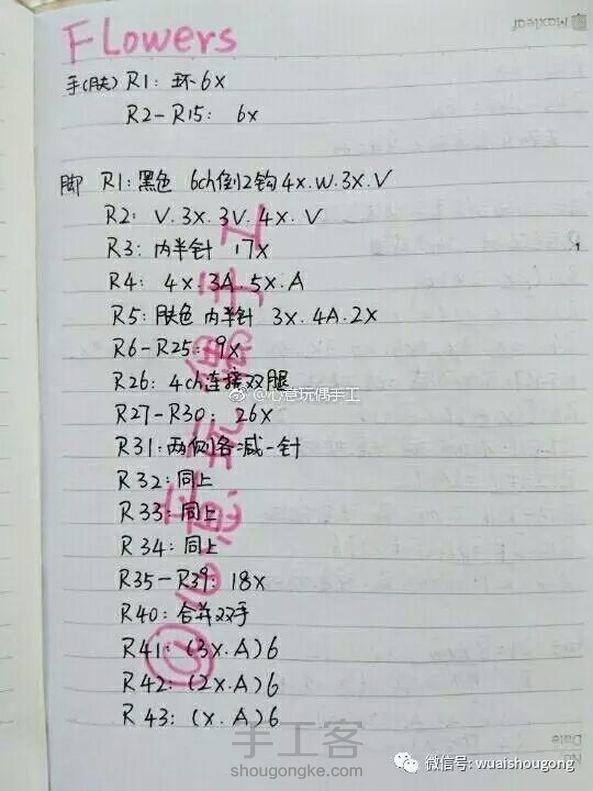 Maxleaf
FLowers
手(肤) R1: 环6X
R2-R15: 6X
脚 R1:黑色 6ch倒2钩4X.W.3X.V
R2: V.3X.3V.4X.V
R3: 内半针 17X
R4: 4X.3A.5X.A
R5: 肤色 内半针 3X.4A.2X
R6-R25: 9X
R26: 4ch连接双腿
R27-R30: 26X
R31:两侧各减一针
R32:同上
R33:同上
R34:同上
R35-R39: 18X
R40: 合并双手
R41: (3X.A)6
R42: (2X.A)6
R43: (X.A)6
@心意玩偶手工
@心意玩偶手工
手工客
shougongke.com
微信号: wuaishougong
Date
No